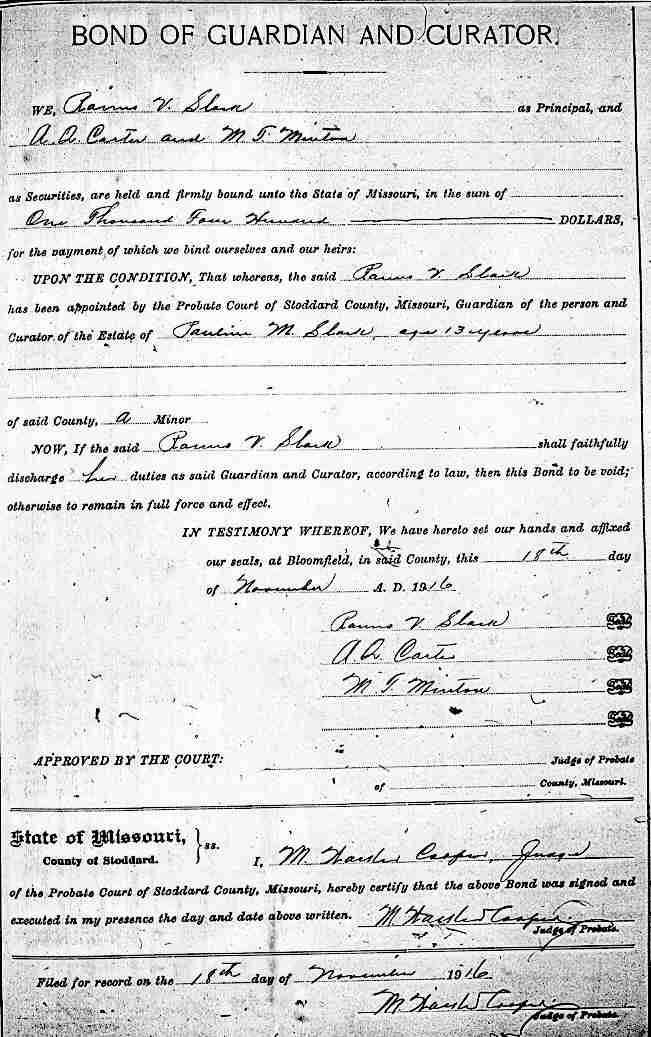 BOND OF GUARDIAN AND CURATOR.
WE, V. Slark as Principal, and
A. A. Carter and M T. Minton
as Securities, are held and firmly bound unto the State of Missouri, in the sum of
One Thousand Four Hundred DOLLARS,
for the payment of which we bind ourselves and our heirs:
UPON THE CONDITION, That whereas, the said V. Slark
has been appointed by the Probate Court of Stoddard County, Missouri, Guardian of the person and
Curator of the Estate of Pauline M. Slark, age 13 years
of said County, a Minor
NOW, If the said V. Slark shall faithfully
discharge her duties as said Guardian and Curator, according to law, then this Bond to be void;
otherwise to remain in full force and effect.
IN TESTIMONY WHEREOF, We have hereto set our hands and affixed
our seals, at Bloomfield, in said County, this 18th day
of November A. D. 1916
V. Slark Seal
A A Carter Seal
M T. Minton Seal
Seal
APPROVED BY THE COURT: Judge of Probate
of County, Missouri.
State of Missouri, } ss.
County of Stoddard. I, M Cooper, Judge
of the Probate Court of Stoddard County, Missouri, hereby certify that the above Bond was signed and
executed in my presence the day and date above written. M Cooper
Judge of Probate.
Filed for record on the 18th day of November 1916
M Cooper
Judge of Probate.